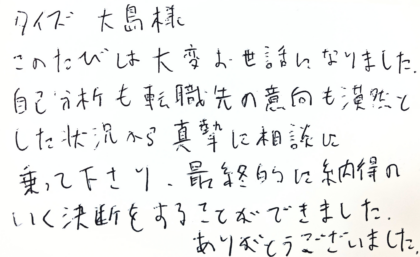 タイズ 大島様
このたびは大変お世話になりました.
自己分析も転職先の意向も漠然と
した状況から真摯に相談に
乗って下さり、最終的に納得の
いく決断をすることができました.
ありがとうございました.